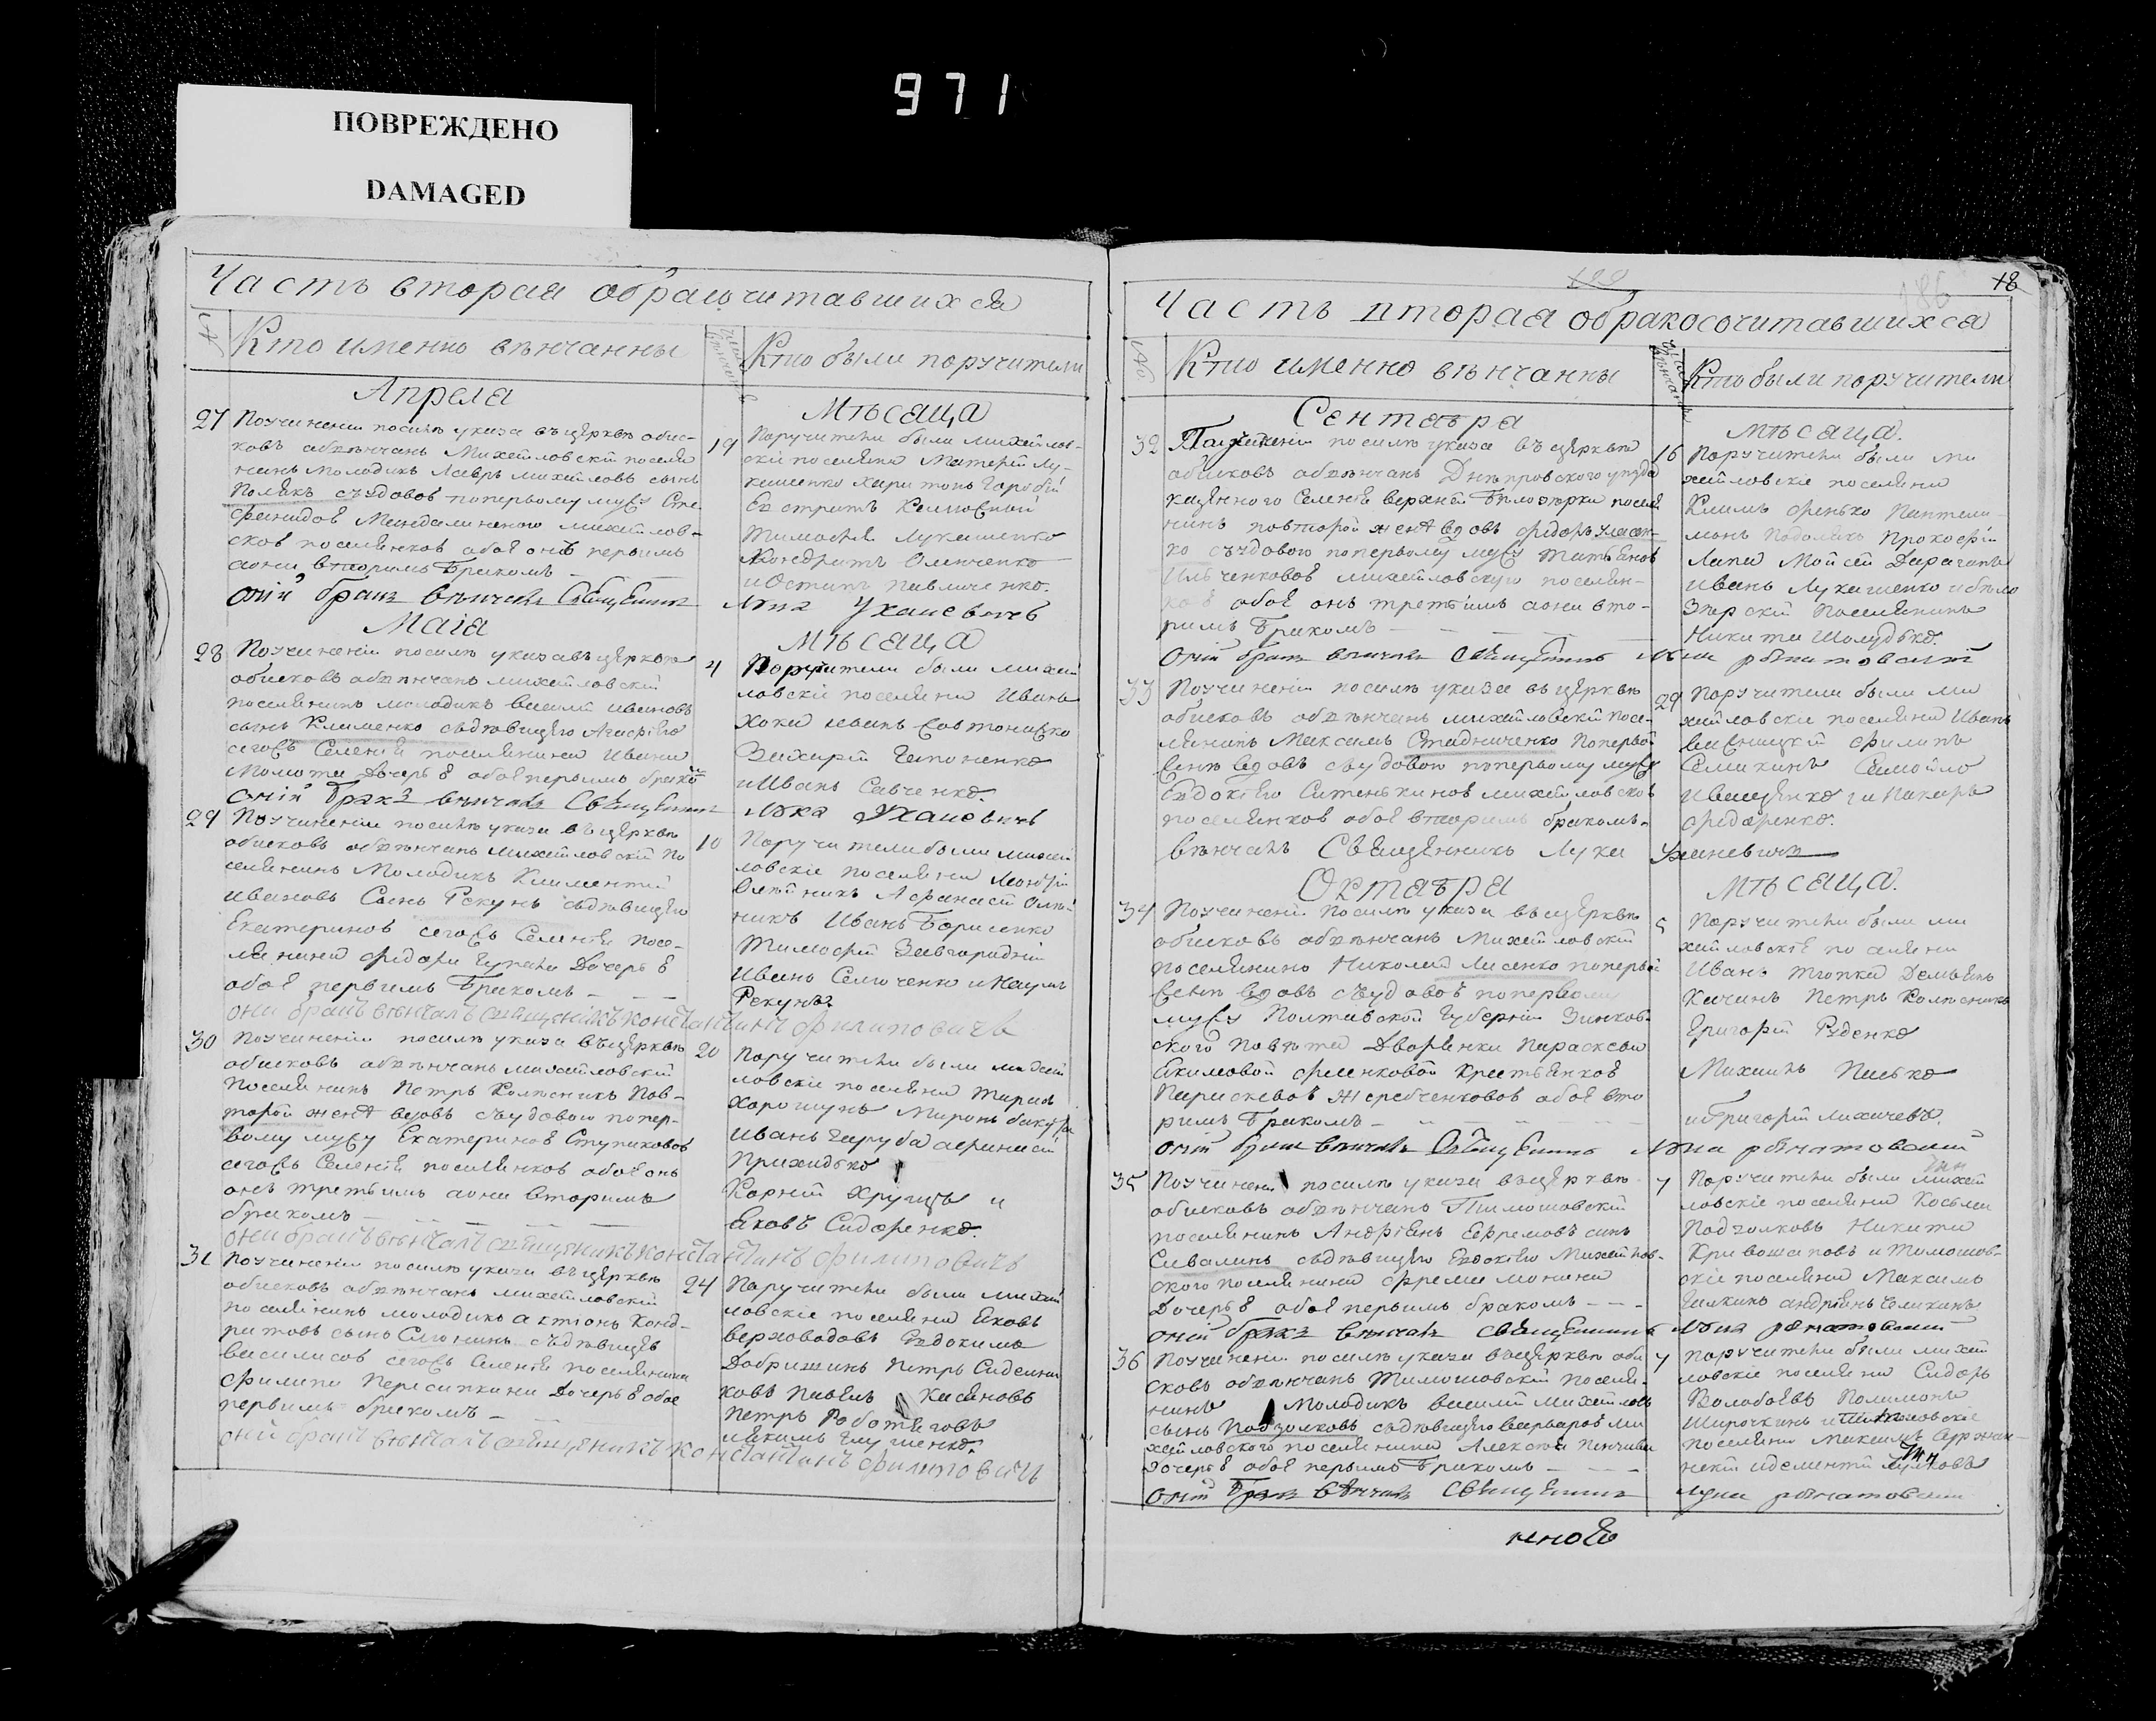 971
ПОВРЕЖДЕНО
DAMAGED
Часть вторая о бракосочитавшихся
№
Кто именно венчанны
Кто были поручители
Апреля
Мѣсяца
27
Поучиненіи посилѣ указа въ церквѣ обис-
ковъ обвѣнчанъ Михайловскій поселя
нинъ молодикъ Лавръ михайловъ сынъ
Полякъ съудовоѣ поперьвому мужу Сте
фанидоѣ михайлов-
скоѣ поселянкоѣ обоѣ онъ перьвимъ
аони вторимъ бракомъ
оній бракъ вѣнчалъ Священникъ Лука Уханевичъ
19
Поручители были михайлов-
скіе поселяни
Харитонъ Горобій
Тимофѣй Лукашенко
Кондратъ
и Остапъ Павличенко.
Маія
Мѣсяца
28
Поучиненіи посилѣ указа въ церквѣ
обисковъ обвѣнчанъ михайловскій
поселянинъ молодикъ василій ивановъ
сынъ Клименко съдѣвицею Агафіею
сегожъ Селенія поселянина Ивана
Молоти Дочерьѣ обоѣ перьвимъ брако
оній бракъ вѣнчалъ Священникъ Лука Уханевичъ
4
Поручители были михай
ловскіе поселяни Иванъ
Хока иванъ
Захарій Гапоненко
и Иванъ Савченко.
29
Поучиненіи посилѣ указа въ церквѣ
обисковъ обвѣнчанъ михайловскій по
селянинъ Молодикъ Климентій
ивановъ Сынъ Рекунъ съдѣвицею
Екатериноѣ сегожъ Селенія посе-
лянина федора Дочерьѣ
обоѣ перьвимъ бракомъ
оній бракъ вѣнчалъ священикъ константинъ филиповичъ
10
Поручители были михай
ловскіе поселяни
Олѣйникъ Афанасій Олѣй
никъ Иванъ Борисенко
Тимофій Завгородній
Иванъ Семиченко и Наумъ
Рекунъ.
30
Поучиненіи посилѣ указа въ церквѣ
обисковъ обвѣнчанъ михайловскій
поселянинъ Петръ Колѣсникъ Пов-
торой женѣ вдовъ съудовою попер-
вому мужу Екатериноѣ Ступиковоѣ
сегожъ Селенія поселянкоѣ обоѣ онъ
онъ третьимъ аони вторимъ
бракомъ
оній бракъ вѣнчалъ священникъ константинъ филиповичъ
20
Поручители были михай
ловскіе поселяни Тарасъ
Хорошунъ Миронъ бакута
иванъ Гируба афанасій
Приходько
Корній Хрущъ и
Яковъ Сидоренко.
31
Поучиненіи посилѣ указа въ церквѣ
обисковъ обвѣнчанъ михайловскій
поселянинъ молодикъ актіонъ Конд-
ратовъ сынъ съдѣвицеѣ
василисоѣ сегожъ Селенія поселянина
филипа Пересипкина Дочерьѣ обое
перьвимъ бракомъ
оній бракъ вѣнчалъ священникъ константинъ филиповичъ
24
Поручители были михай
ловскіе поселяни Яковъ
верховодовъ Евдокимъ
Добришинъ петръ
ковъ Павелъ Касяновъ
Петръ Роботяговъ
иякимъ Глущенко.
18
186
Часть вторая о бракосочитавшихся
№
Кто именно вѣнчанны
Кто были поручители
Сентабра
Мѣсяца.
32
Поучиненіи посилѣ указа въ церквѣ
обисковъ обвѣнчанъ Днѣпровского уѣзда
казенного Селенія верхней Бѣлозѣрки поселя
нинъ повторой женѣ вдовъ федоръ Уласен-
ко съудовою поперьвому мужу татьяноѣ
Ильченковоѣ михайловскую поселян-
коѣ обоѣ онъ третьимъ аони вто-
римъ бракомъ
оній бракъ вѣнчалъ Священникъ Лука
16
Поручители были ми
хайловскіе поселяни
Климъ фенько Пантели-
монъ Подолякъ Прокофій
Лапа Мойсей Дараганъ
Иванъ Лукашенко ибѣло
зѣрскій Поселянинъ
Никита Шолудько.
33
Поучиненіи посилѣ указа въ церквѣ
обисковъ обвѣнчанъ михайловскій посе-
лянинъ Максимъ Стадниченко поперьвой
женѣ вдовъ съудовою поперьвому мужу
Евдокіею Ситенькиноѣ михайловскоѣ
поселянкоѣ обоѣ вторимъ бракомъ.
вѣнчалъ Священникъ Лука Уханевичъ
29
Поручители были ми
хайловскіе поселяни Иванъ
филипъ
Семикинъ Самойло
Иващенко и Макаръ
федоренко.
Октабра
Мѣсяца.
34
Поучиненіи посилѣ указа въ церквѣ
обисковъ обвѣнчанъ Михайловскій
поселянино Николай Лисенко поперьвой
женѣ вдовъ съудовоѣ поперьвому
мужу Полтавской Губерніи Зинков-
ского повѣта Дворянки Параскевы
Якимовой фисенковой Крестьянкоѣ
Параскевоѣ Жеребченковоѣ обоѣ вто
римъ бракомъ
оній бракъ вѣнчалъ Священникъ Лука
5
Поручители были ми
хайловскіе поселяни
Иванъ тяпка Демьянъ
Качинъ Петръ Колѣсникъ
Григорій Руденко
Михаилъ Пилько
и Григорій лихачевъ.
35
Поучиненіи посилѣ указа въ церквѣ
обисковъ обвѣнчанъ Тимошовскій
поселянинъ Андріянъ Ефремовъ синъ
Сивалинъ съдѣвицею Евдокіею Михайлов-
ского поселянина
Дочерьѣ обоѣ перьвимъ бракомъ
оній бракъ вѣнчалъ священникъ Лука
7
Поручители были михай
ловскіе поселяни Косьма
Подголковъ Никита
Кривошаповъ и Тимошов-
скіе поселяни Максимъ
Галкинъ андріянъ Чаликинъ
36
Поучиненіи посилѣ указа въ церквѣ оби
сковъ обвѣнчанъ Тимошовскій поселя-
нинъ Молодикъ василій михайловъ
сынъ Подголковъ съдѣвицею варвароѣ ми
хайловского поселянина Алексѣя
дочерьѣ обоѣ перьвимъ бракомъ
оній бракъ вѣнчалъ Священникъ Лука
7
поручители были михай
ловскіе поселяни Сидоръ
Волобоевъ Полимонъ
Широчкинъ и Тимошовскіе
поселяни Максимъ